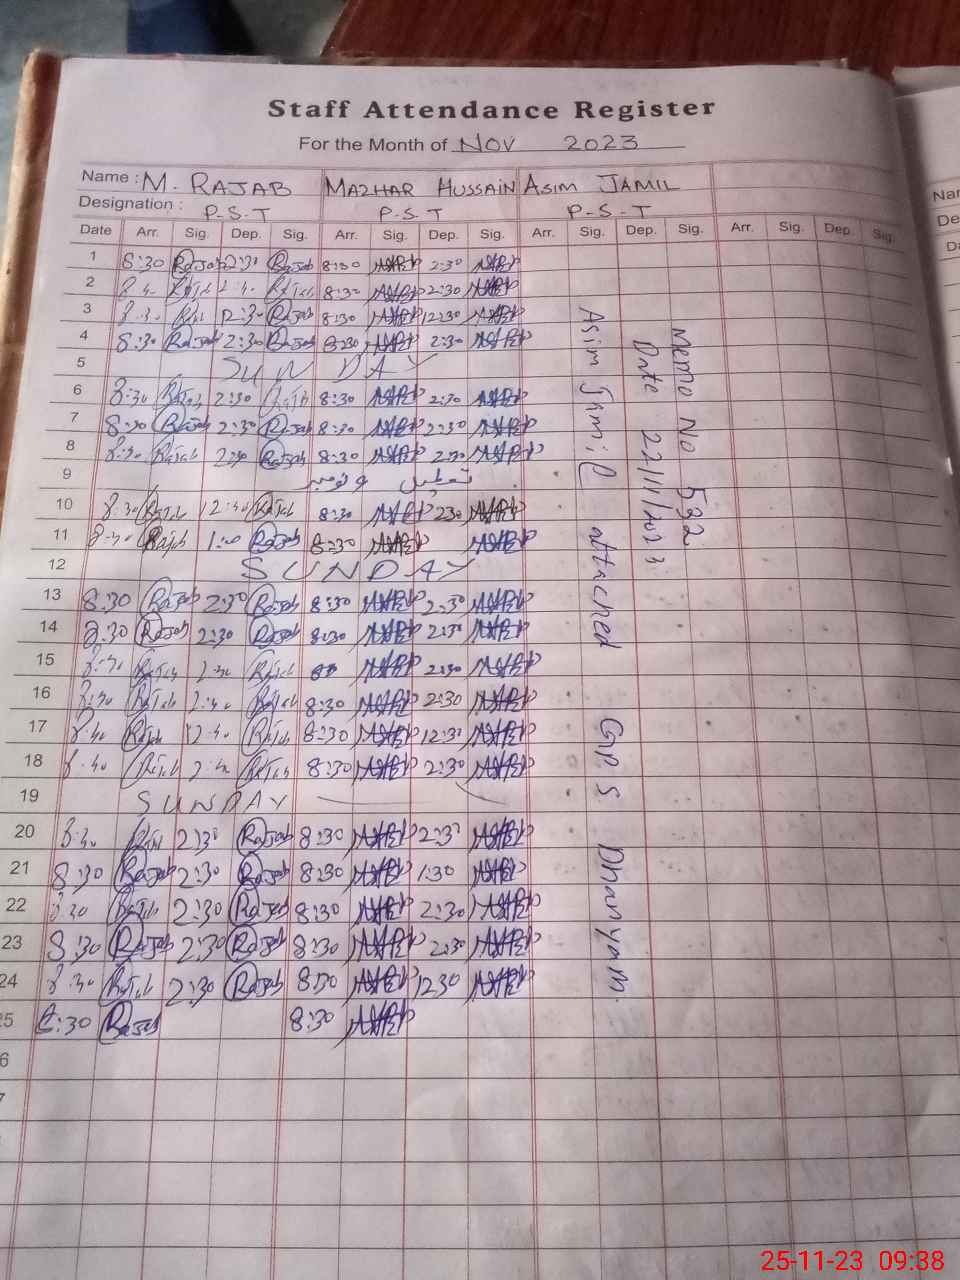 Staff Attendance Register
For the Month of Nov 2023
Name : M. RAJAB MAZHAR HUSSAIN ASIM JAMIL
Designation : P-S-T P.S.T P-S-T
Date Arr. Sig. Dep. Sig. Arr. Sig. Dep. Sig. Arr. Sig. Dep. Sig. Arr. Sig. Dep. Sig.
1 8:30 Rajab 2:30 Rajab 8:30 2:30
2 8:30 Rajab 2:30 Rajab 8:30 2:30
3 8:30 12:30 Rajab 8:30 12:30
4 8:30 Rajab 2:30 Rajab 8:30 2:30
5 SUNDAY
6 8:30 Rajab 2:30 Rajab 8:30 2:30
7 8:30 Rajab 2:30 Rajab 8:30 2:30
8 8:30 Rajab 2:30 Rajab 8:30 2:30
9 تعطیل ۹ نومبر
10 8:30 Rajab 12:30 Rajab 8:30 230
11 8:30 Rajab Rajab 8:30
12 SUNDAY
13 8:30 Rajab 2:30 Rajab 8:30 2:30
14 8:30 Rajab 2:30 Rajab 8:30 2:30
15 8:30 Rajab 2:30 Rajab 2:30
16 8:30 Rajab 2:30 Rajab 8:30 2:30
17 8:30 Rajab 12:30 Rajab 8:30 12:30
18 8:30 Rajab 2:30 Rajab 8:30 2:30
19 SUNDAY
20 8:30 2:30 Rajab 8:30 2:30
21 8:30 Rajab 2:30 Rajab 8:30 1:30
22 8:30 Rajab 2:30 Rajab 8:30 2:30
23 8:30 Rajab 2:30 Rajab 8:30 2:30
24 8:30 Rajab 2:30 Rajab 8:30 1230
25 8:30 Rajab 8:30
6
7
Memo No 532
Date 22/11/2023
Asim Jamil attached GPS Dhanyam.
Nar
De
Da
25-11-23 09:38